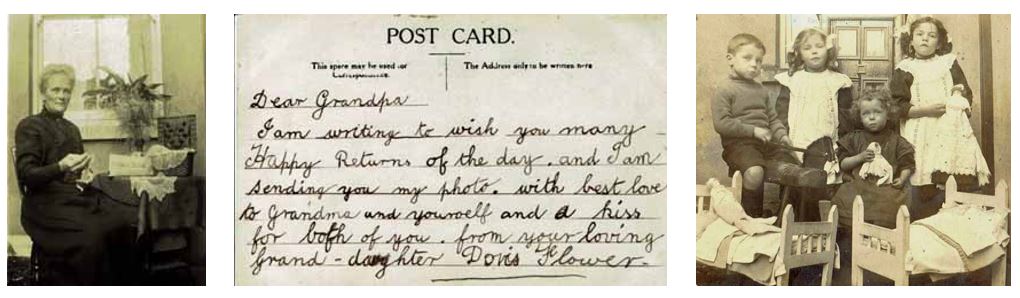 POST CARD.
This space may be used for The Address only to be written here
Correspondence.
Dear Grandpa
I am writing to wish you many
Happy Returns of the day. and I am
sending you my photo. with best love
to Grandma and yourself and a kiss
for both of you. from your loving
Grand-daughter Doris Flower.